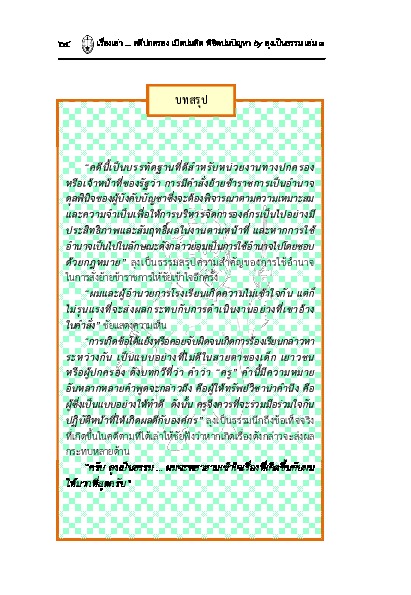 ๒๔ เรื่องเล่า ... คดีปกครอง เปิดปมคิด พิชิตปมปัญหา by ลุงเป็นธรรม เล่ม ๓
บทสรุป
“คดีนี้เป็นบรรทัดฐานที่ดีสำหรับหน่วยงานทางปกครอง
หรือเจ้าหน้าที่ของรัฐว่า การมีคำสั่งย้ายข้าราชการเป็นอำนาจ
ดุลพินิจของผู้บังคับบัญชาซึ่งจะต้องพิจารณาตามความเหมาะสม
และความจำเป็นเพื่อให้การบริหารจัดการองค์กรเป็นไปอย่างมี
ประสิทธิภาพและสัมฤทธิ์ผลในงานตามหน้าที่ และหากการใช้
อำนาจเป็นไปในลักษณะดังกล่าวย่อมเป็นการใช้อำนาจไปโดยชอบ
ด้วยกฎหมาย” ลุงเป็นธรรมสรุปความสำคัญของการใช้อำนาจ
ในการสั่งย้ายข้าราชการให้ชัยเข้าใจอีกครั้ง
“ผมและผู้อำนวยการโรงเรียนเกิดความไม่เข้าใจกัน แต่ก็
ไม่รุนแรงที่จะส่งผลกระทบกับการดำเนินงานอย่างที่เขาอ้าง
ในคำสั่ง” ชัยแสดงความเห็น
“การเกิดข้อโต้แย้งหรือคอยจับผิดจนเกิดการร้องเรียนกล่าวหา
ระหว่างกัน เป็นแบบอย่างที่ไม่ดีในสายตาของเด็ก เยาวชน
หรือผู้ปกครอง ดังบทกวีที่ว่า คำว่า “ครู” คำนี้มีความหมาย
อันหลากหลายคำพูดจะกล่าวถึง คือผู้ให้ทรัพย์วิชานำคำนึง คือ
ผู้ซึ่งเป็นแบบอย่างให้ทำดี ดังนั้น ครูจึงควรที่จะร่วมมือร่วมใจกัน
ปฏิบัติหน้าที่ให้เกิดผลดีกับองค์กร” ลุงเป็นธรรมนึกถึงข้อเท็จจริง
ที่เกิดขึ้นในคดีตามที่ได้เล่าให้ชัยฟังว่าหากเกิดเรื่องดังกล่าวจะส่งผล
กระทบหลายด้าน
“ครับ ลุงเป็นธรรม ... ผมจะพยายามเข้าใจเรื่องที่เกิดขึ้นกับผม
ให้มากที่สุดครับ”